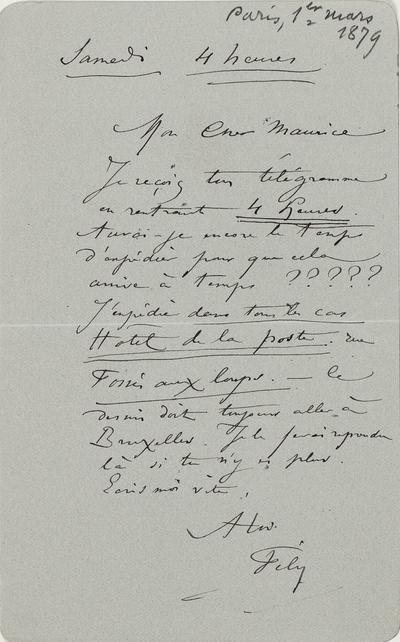 Paris, 1er mars
1879
Samedi 4 heures
Mon Cher Maurice
Je reçois ton télégramme
en rentrant 4 heures.
Aurai-je encore le temps
d'expédier pour que cela
arrive à temps ?????
J'expédie dans tous les cas
Hotel de la poste. rue
Fossés aux loups. le
dessin doit toujours aller à
Bruxelles. Je le ferai reprendre
là si tu n'y es plus.
Ecris moi vite.
A toi.
Fély